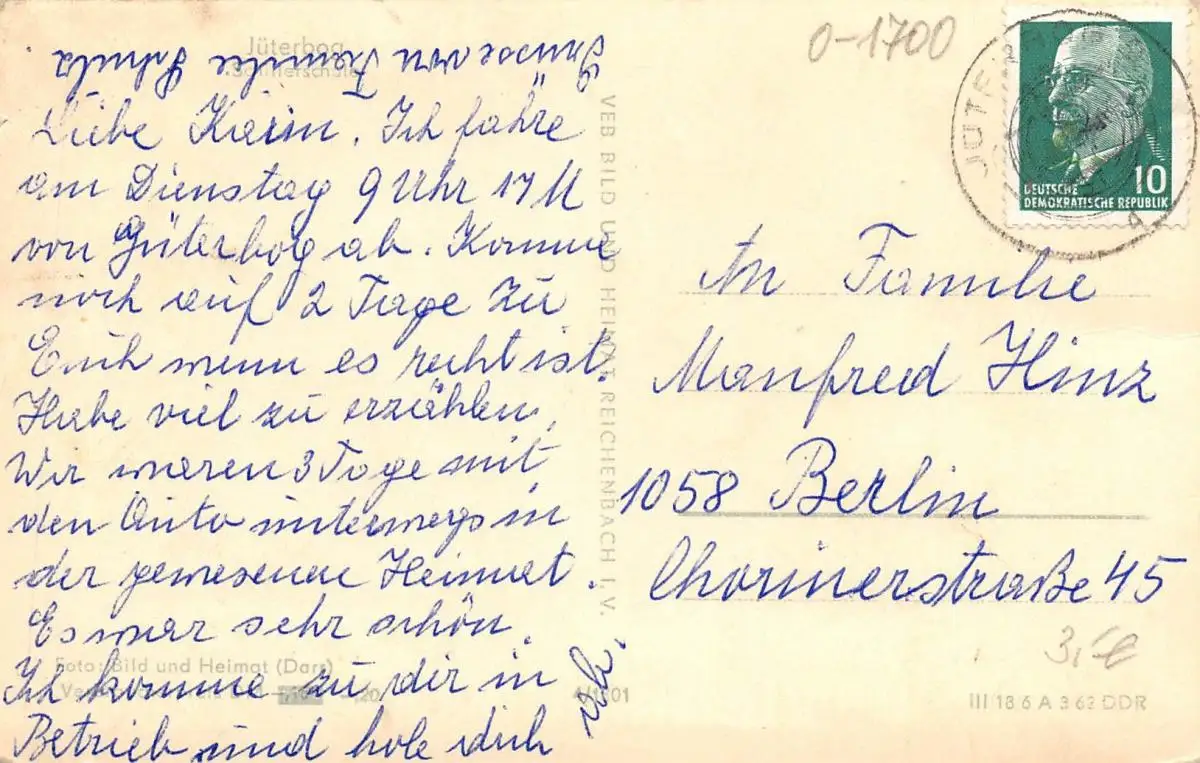 Jüterbog
Grüsse von Familie Schulz
Liebe Karin. Ich fahre
am Dienstag 9 Uhr 17 M
von Güterbog ab. Komme
noch auf 2 Tage zu
Euch wenn es recht ist.
Habe viel zu erzählen.
Wir waren 3 Tage mit
den Auto unterwegs in
der gewesenen Heimat.
Es war sehr schön.
Ich komme zu dir in
Betrieb und hole dich
ab.
Foto: Bild und Heimat (Dars)
4/1201
VEB BILD UND HEIMAT REICHENBACH I. V.
0-1700
DEUTSCHE
DEMOKRATISCHE REPUBLIK
10
An Familie
Manfred Hinz
1058 Berlin
Chorinerstraße 45
III 18 6 A 3 62 DDR